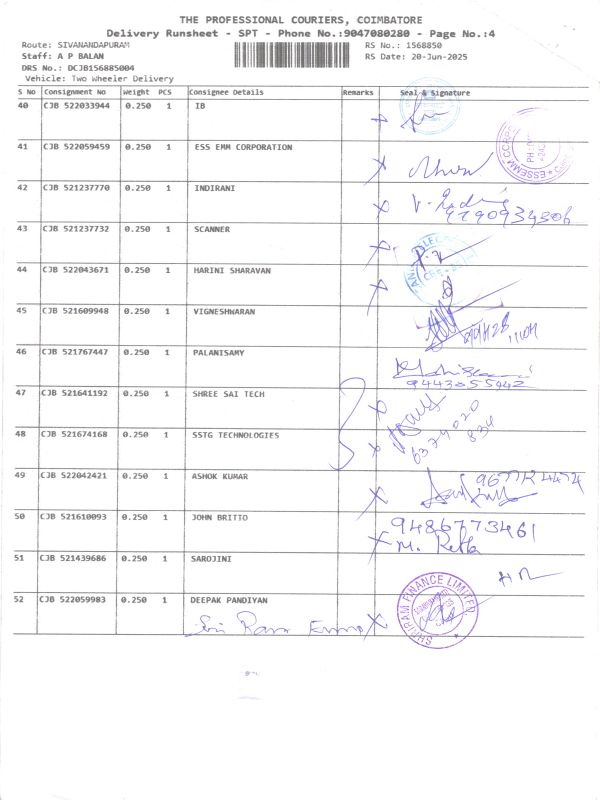 THE PROFESSIONAL COURIERS, COIMBATORE
Delivery Runsheet - SPT - Phone No.:9047080280 - Page No.:4
Route: SIVANANDAPURAM RS No.: 1568850
Staff: A P BALAN RS Date: 20-Jun-2025
DRS No.: DCJB156885004
Vehicle: Two Wheeler Delivery
S No Consignment No Weight PCS Consignee Details Remarks Seal & Signature
40 CJB 522033944 0.250 1 IB
41 CJB 522059459 0.250 1 ESS EMM CORPORATION
42 CJB 521237770 0.250 1 INDIRANI
43 CJB 521237732 0.250 1 SCANNER
44 CJB 522043671 0.250 1 HARINI SHARAVAN
45 CJB 521609948 0.250 1 VIGNESHWARAN
46 CJB 521767447 0.250 1 PALANISAMY
9443055442
47 CJB 521641192 0.250 1 SHREE SAI TECH
48 CJB 521674168 0.250 1 SSTG TECHNOLOGIES
6374020
834
49 CJB 522042421 0.250 1 ASHOK KUMAR
50 CJB 521610093 0.250 1 JOHN BRITTO 9486773461
51 CJB 521439686 0.250 1 SAROJINI
52 CJB 522059983 0.250 1 DEEPAK PANDIYAN
SHRIRAM FINANCE LIMITED